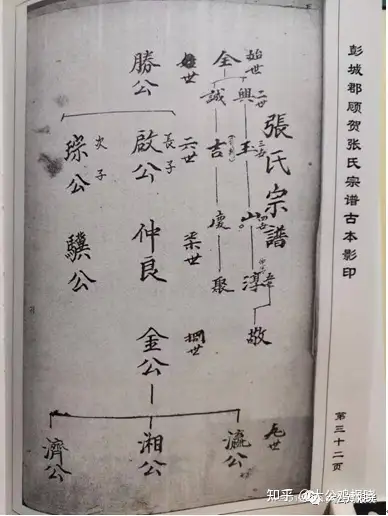 彭城郡顾贺张氏宗谱古本影印
第三十二页
張氏宗譜
始世
全
二世
興
誠
三世
玉
吉
四世
山
慶
淳
聚
敬
勝公
六世
長子
啟公
次子
琮公
柒世
仲良
驥公
捌世
金公
九世
瀛公
湘公
濟公
知乎